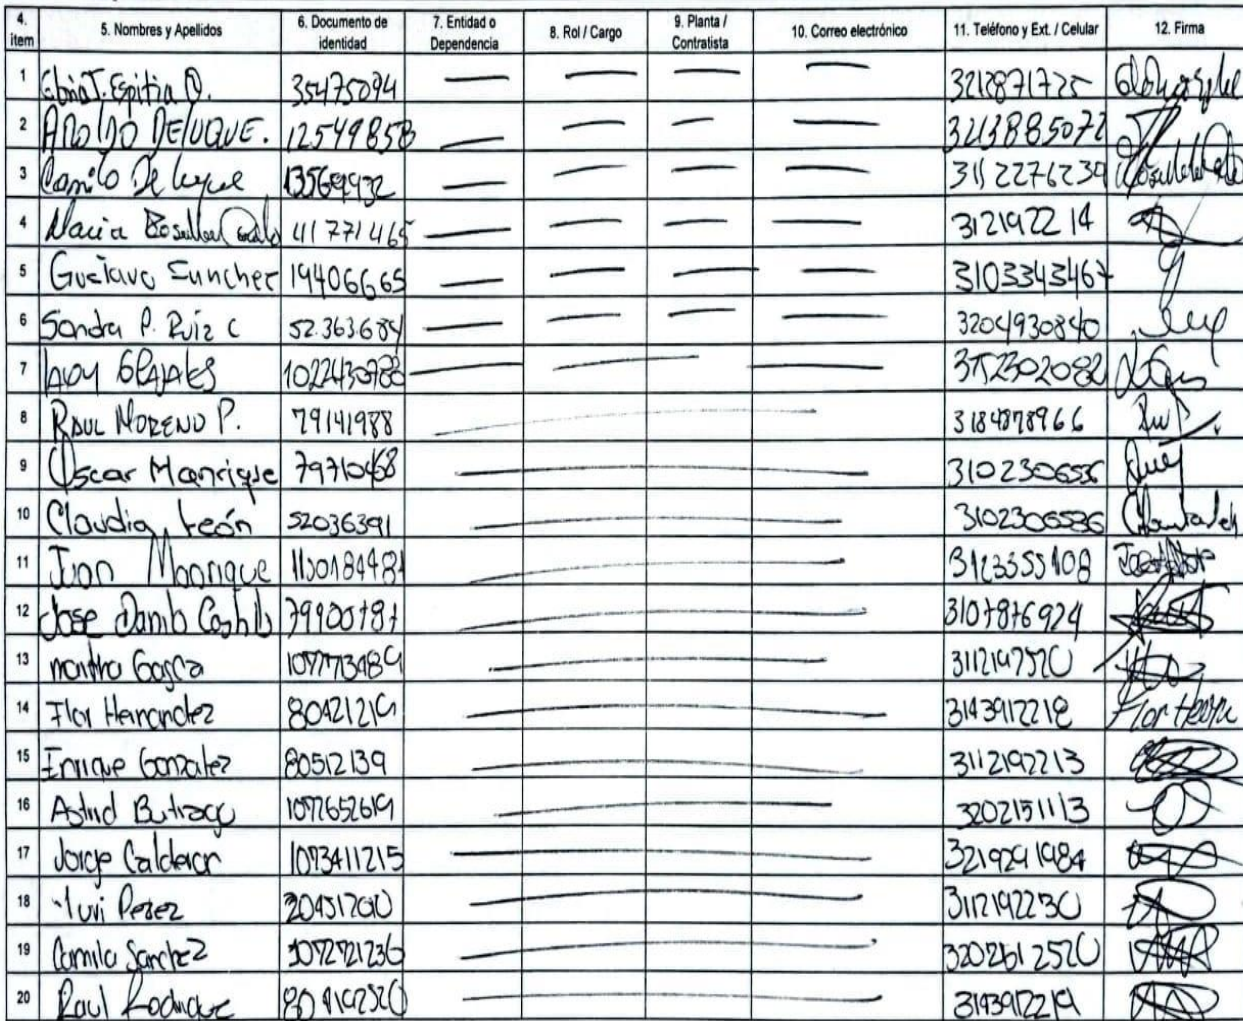 4. item 5. Nombres y Apellidos 6. Documento de identidad 7. Entidad o Dependencia 8. Rol / Cargo 9. Planta / Contratista 10. Correo electrónico 11. Teléfono y Ext. / Celular 12. Firma
1 Espitia 35475094 — — — — 3212871725
2 AROLDO DELUQUE. 12549858 — — — — 3213885072
3 Camilo De luque — — — — 3112276239
4 Maria 41771465 — — — — 312192214
5 Gustavo Sunchez 19406665 — — — — 3103343467
6 Sandra P. Ruiz C 52.363.684 — — — — 3204930840
7 LADY GRAJALES — — —
8 RAUL MORENO P. 79141988 — 3184878966
9 Oscar Manrique 79710468 — 3102306536
10 Claudia León 52036391 — 3102306536
11 Juan Manrique — 3123355108
12 Jose Danilo Castillo 79900787 — 3107876924
13 Gasca — 3112197520
14 Flor Hernandez 80421219 — 3143912218 Flor
15 Enrique Gonzalez 80512139 — 3112192213
16 Astrid Buitrago 1072652619 — 3202151113
17 Jorge Calderon 1073411215 — 3219291984
18 Yuri Perez — 3112192230
19 Camila Sanchez — 3202612520
20 Raul Rodrigue — 3143912219